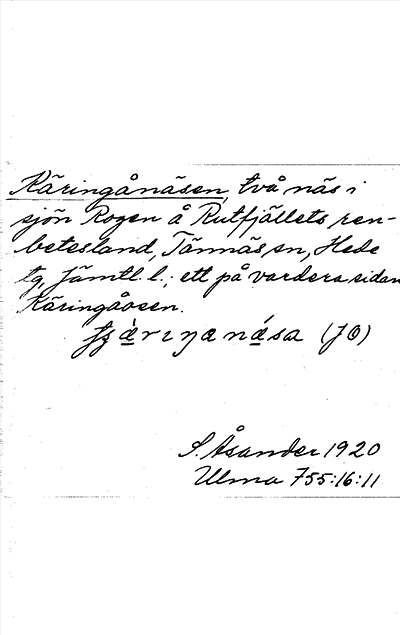 Käringånäsen, två näs i
sjön Rogen å Rutfjällets ren-
betesland, Tännäs sn, Hede
tg, Jämtl. l.; ett på vardera sidan
Käringåosen.
(JÖ)
S. Åsander 1920
Ulma 755:16:11